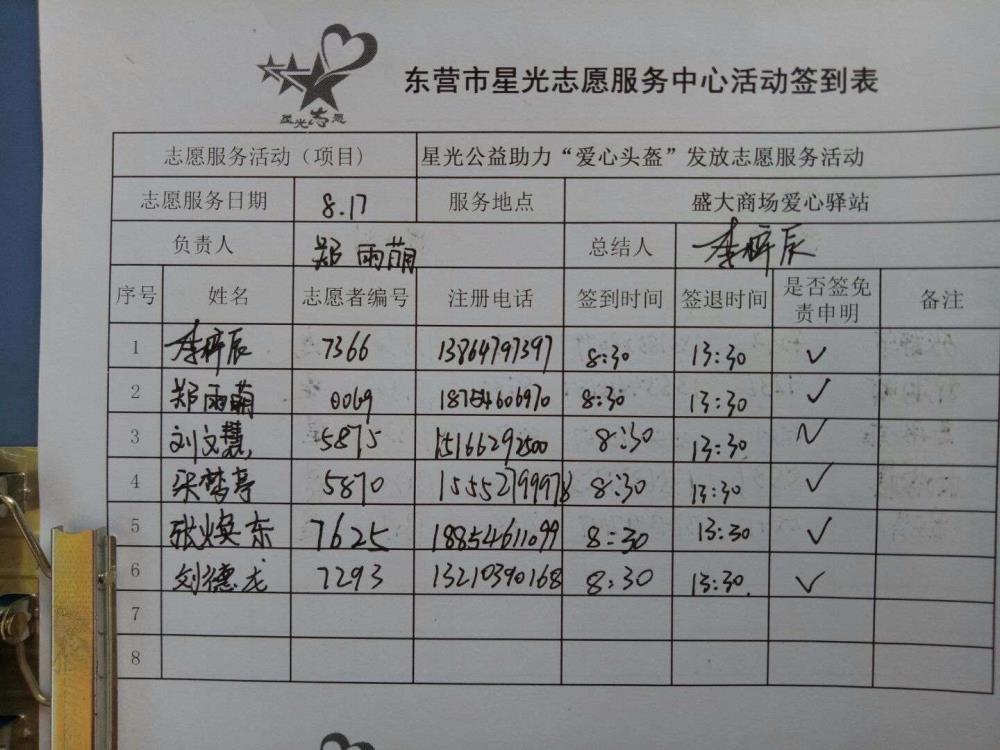 星光志愿
东营市星光志愿服务中心活动签到表
志愿服务活动（项目） 星光公益助力“爱心头盔”发放志愿服务活动
志愿服务日期 8.17 服务地点 盛大商场爱心驿站
负责人 郑雨萌 总结人 李梓辰
序号 姓名 志愿者编号 注册电话 签到时间 签退时间 是否签免责申明 备注
1 李梓辰 7366 13864797397 8:30 13:30 ✓
2 郑雨萌 0069 18754606970 8:30 13:30 ✓
3 刘文慧 5875 15166292500 8:30 13:30 ✓
4 宋梦亭 5870 15552799978 8:30 13:30 ✓
5 张焕东 7625 18854611099 8:30 13:30 ✓
6 刘德龙 7293 13210390168 8:30 13:30. ✓
7
8